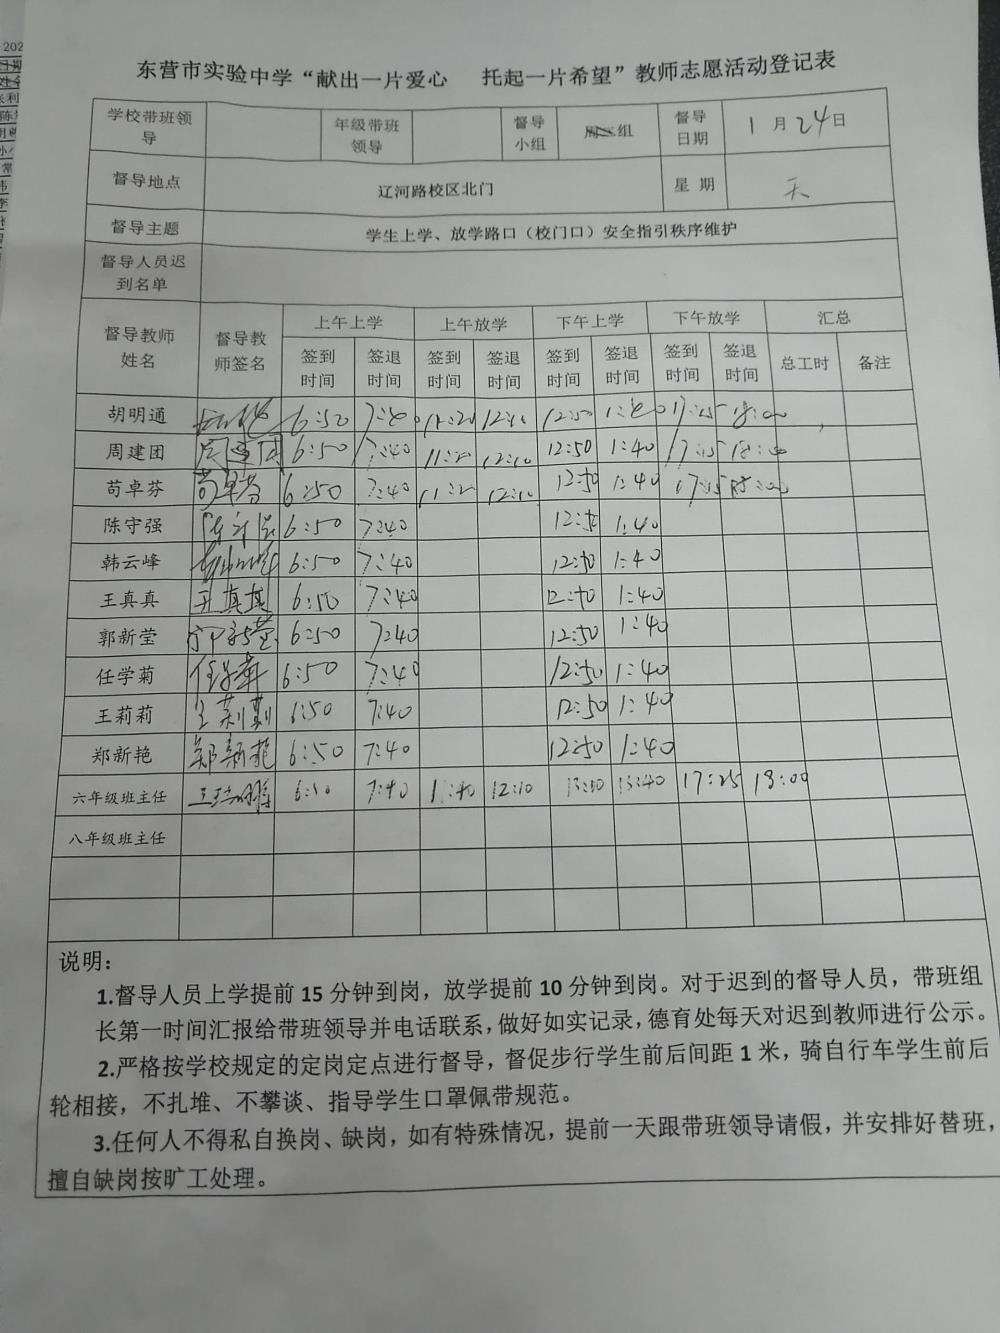 东营市实验中学“献出一片爱心 托起一片希望”教师志愿活动登记表
学校带班领导 年级带班领导 督导小组 组 督导日期 1月24日
督导地点 辽河路校区北门 星 期 天
督导主题 学生上学、放学路口（校门口）安全指引秩序维护
督导人员迟到名单
督导教师姓名 督导教师签名 上午上学 上午放学 下午上学 下午放学 汇总
签到时间 签退时间 签到时间 签退时间 签到时间 签退时间 签到时间 签退时间 总工时 备注
胡明通 6:50 7:40 11:20 12:10 12:50 1:40 17:25 18:00
周建团 周建团 6:50 7:40 11:20 12:10 12:50 1:40 17:25 18:00
苟卓芬 苟卓芬 6:50 7:40 11:20 12:10 12:50 1:40 17:25 18:00
陈守强 陈守强 6:50 7:40 12:50 1:40
韩云峰 6:50 7:40 12:50 1:40
王真真 王真真 6:50 7:40 12:50 1:40
郭新莹 郭新莹 6:50 7:40 12:50 1:40
任学菊 任学菊 6:50 7:40 12:50 1:40
王莉莉 王莉莉 6:50 7:40 12:50 1:40
郑新艳 郑新艳 6:50 7:40 12:50 1:40
六年级班主任 7:40 12:10 13:40 17:25 18:00
八年级班主任
说明：
1.督导人员上学提前 15 分钟到岗，放学提前 10 分钟到岗。对于迟到的督导人员，带班组
长第一时间汇报给带班领导并电话联系，做好如实记录，德育处每天对迟到教师进行公示。
2.严格按学校规定的定岗定点进行督导，督促步行学生前后间距 1 米，骑自行车学生前后
轮相接，不扎堆、不攀谈、指导学生口罩佩带规范。
3.任何人不得私自换岗、缺岗，如有特殊情况，提前一天跟带班领导请假，并安排好替班，
擅自缺岗按旷工处理。